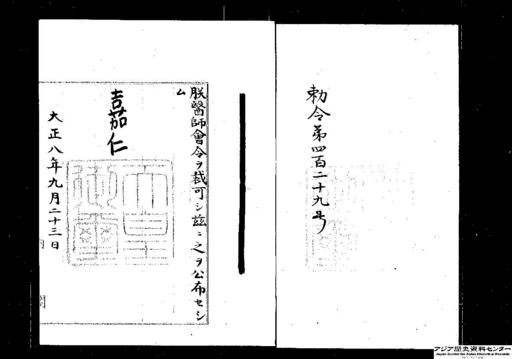 勅令第四百二十九号
朕醫師會令ヲ裁可シ茲ニ之ヲ公布セシ
ム
嘉仁
天皇
御璽
大正八年九月二十三日
アジア歴史資料センター
Japan Center for Asian Historical Records